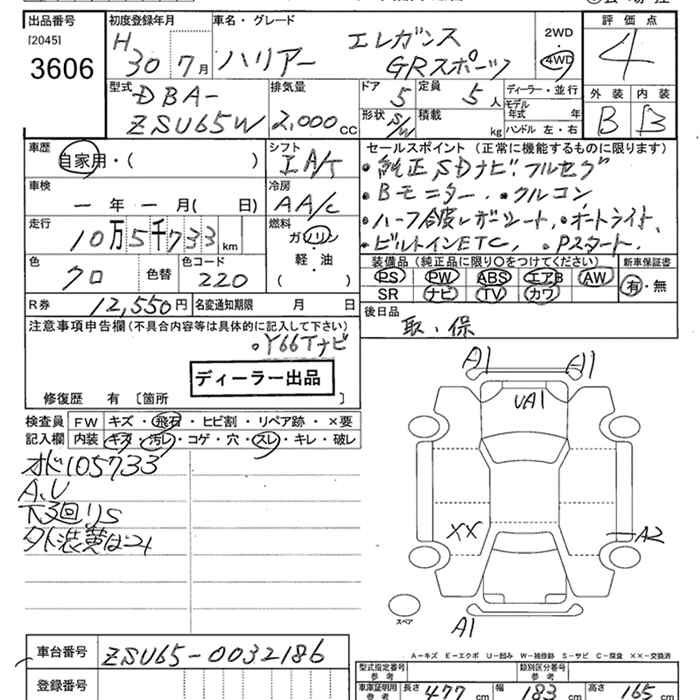 出品番号 初度登録年月 車名・グレード 評価点
[2045] 3606
H 30 7月
ハリアー エレガンス GRスポーツ
2WD 4WD
4
型式 DBA-ZSU65W
排気量 2,000 cc
ドア 5
定員 5人
ディーラー・並行
形状 S/W
積載 kg
モデル年式 年
ハンドル 左・右
外装 B
内装 B
車歴 自家用・( )
シフト IA/T
セールスポイント (正常に機能するものに限ります)
・純正SDナビ フルセグ
・Bモニター ・クルコン
・ハーフ合皮レザーシート、・オートライト、
・ビルトインETC、 ・Pスタート、
車検 ー年ー月( 日)
冷房 AA/C
走行 10万5千733km
燃料 ガソリン
軽・油
( )
色 クロ 色替
色コード 220
装備品 (純正品に限り○をつけてください) 新車保証書
PS PW ABS エアB AW
SR ナビ TV カワ
有・無
R券 12,550円 名変通知期限 月 日
後日品 取・保
注意事項申告欄 (不具合内容等は具体的に記入して下さい)
。Y66Tナビ
ディーラー出品
修復歴 有 〔箇所 〕
検査員記入欄 FW キズ・飛石・ヒビ割・リペア跡・×要
内装 キズ・汚レ・コゲ・穴・スレ・キレ・破レ
オド105733
A,U
下廻りS
外装黄ばみ
A1 A1
UA1
XX
A2
A1
スペア
A－キズ E－エクボ U－凹み W－補修跡 S－サビ C－腐食 XX－交換済
車台番号 ZSU65-0032186
登録番号
型式指定番号 参考
類別区分番号 参考
車庫証明用 参考 長さ 477cm 幅 183cm 高さ 165cm